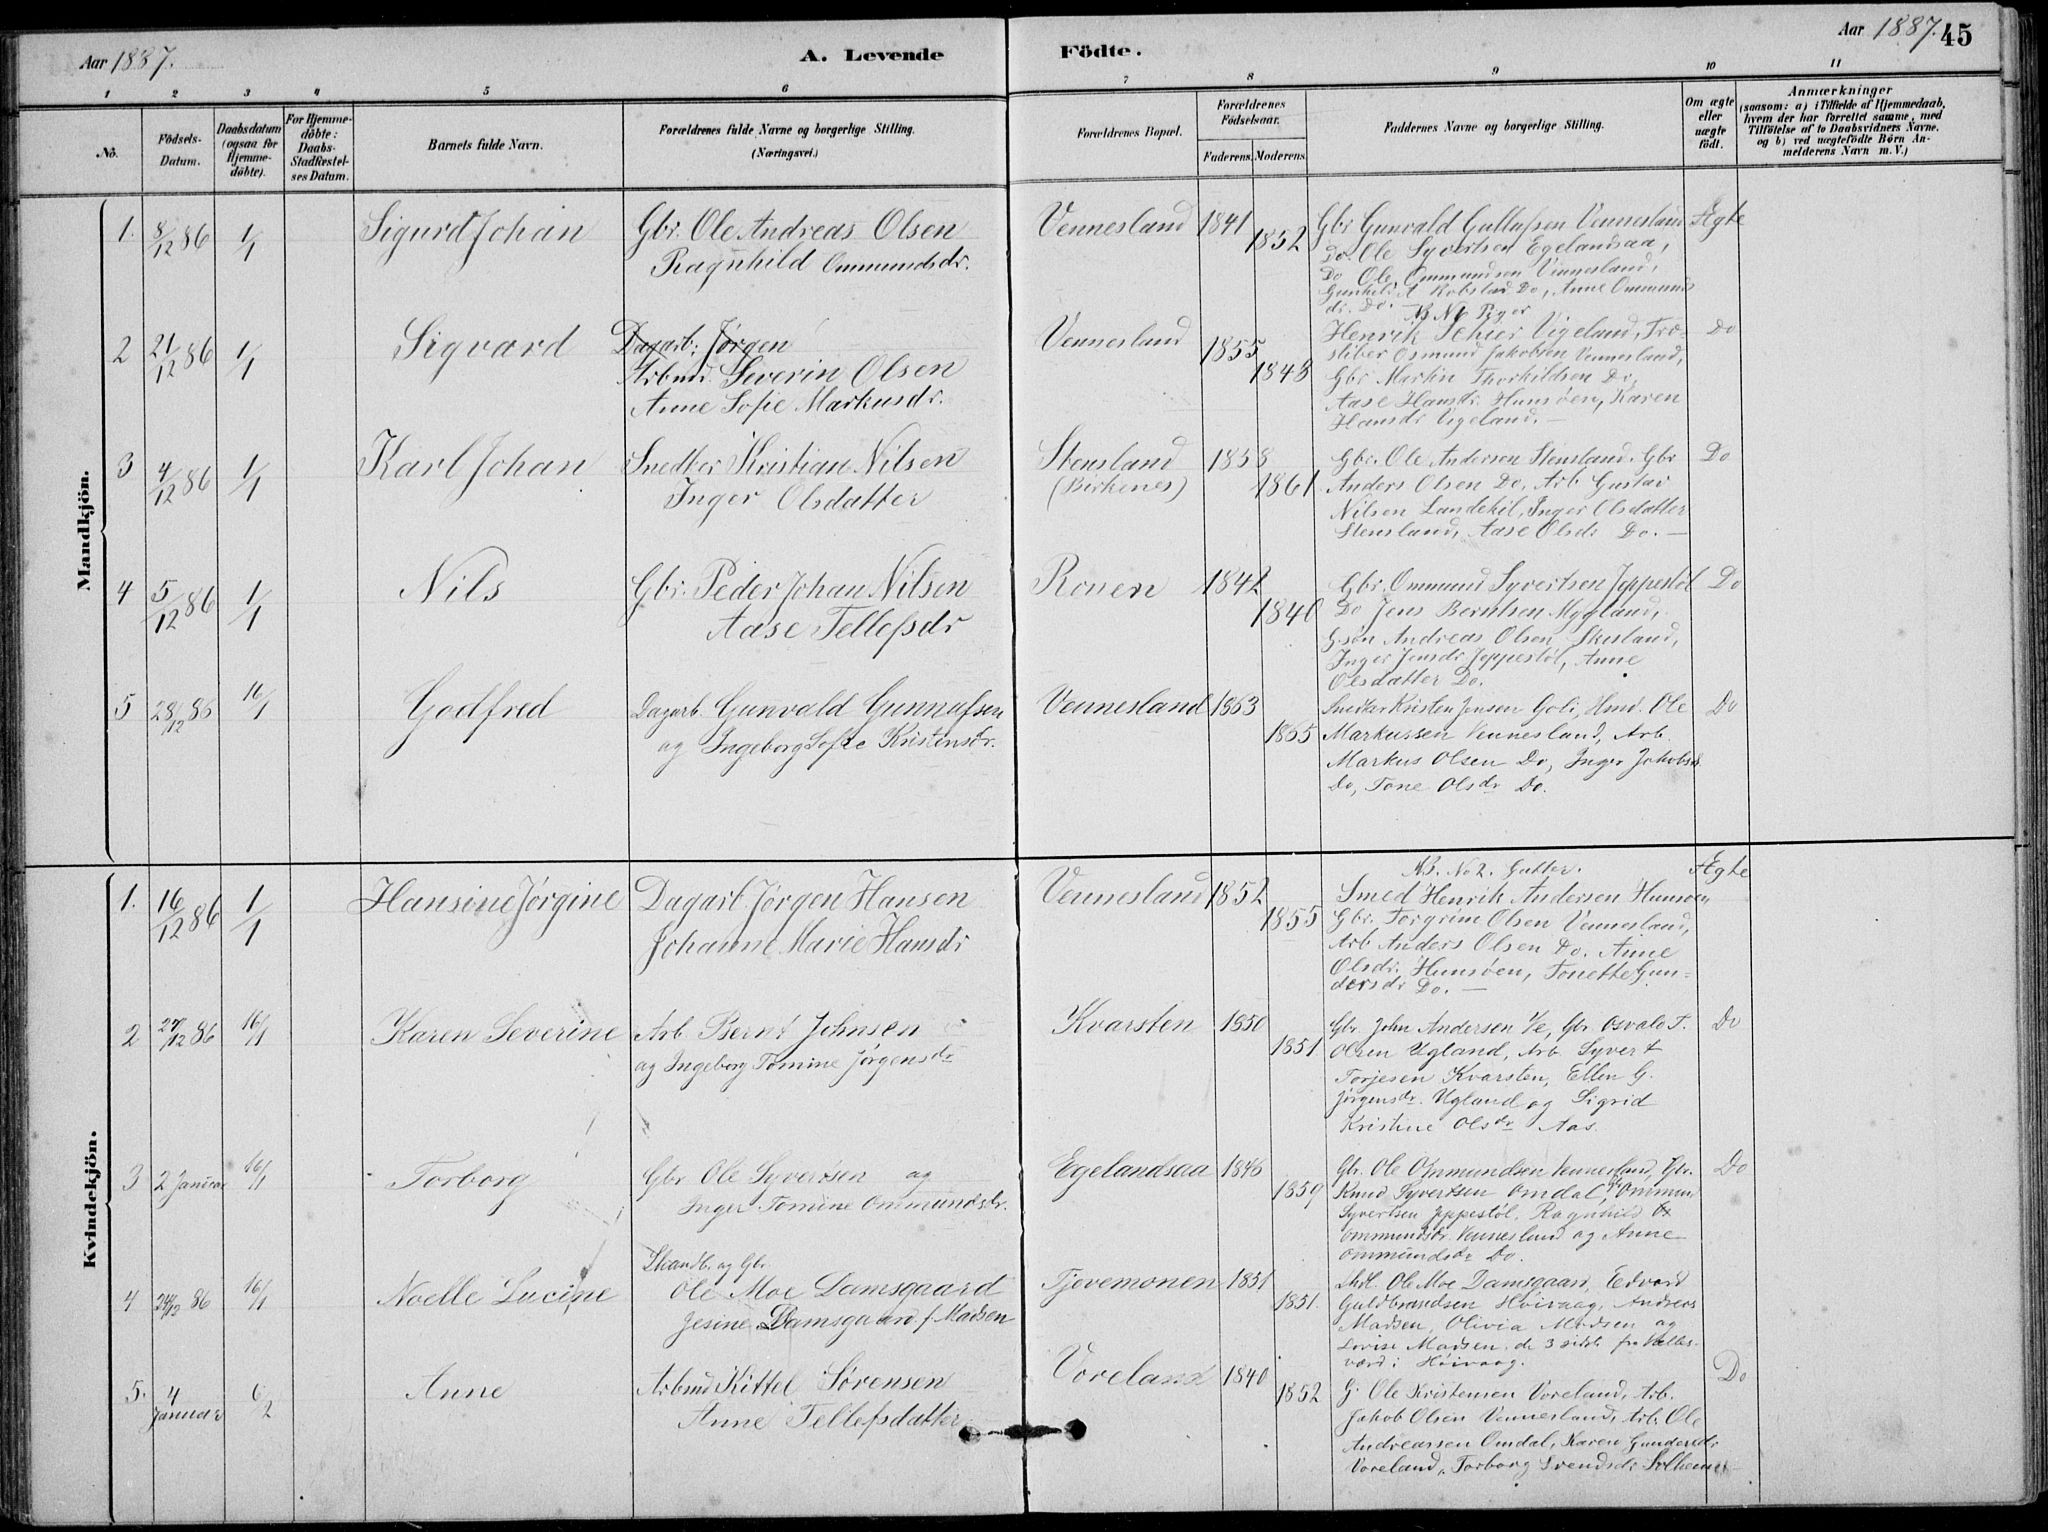 Aar 1887.
A. Levende
Födte.
Aar 1887.
45
1 2 3 4 5 6 7 8 9 10 11
No.
Födsels-
Datum.
Daabsdatum
(ogsaa for
Hjemme-
döbte).
For Hjemme-
döbte:
Daabs-
Stadfestel-
ses Datum.
Barnets fulde Navn.
Forældrenes fulde Navne og borgerlige Stilling.
(Næringsvei.)
Forældrenes Bopæl.
Forældrenes
Födselsaar.
Faderens. Moderens.
Faddernes Navne og borgerlige Stilling.
Om ægte
eller
uægte
födt.
Anmærkninger
(saasom: a) i Tilfælde af Hjemmedaab,
hvem der har forrettet samme, med
Tilföielse af to Daabsvidners Navne.
og b) ved uægtefödte Börn An-
melderens Navn m. V.)
Mandkjön.
1. 8/12 86 1/1 Sigurd Johan
Gbr. Ole Andreas Olsen
Ragnhild Ommundsdr.
Vennesland 1841
1852
Gbr Gunvald Gullufsen Vennesland
Do Ole Syvertsen Egelandsaa,
Do Ole Ommundsen Vennesland,
Gunhild A Robstad Do, Anne Ommunds
dr. Do.
Ægte
2 21/12 86 1/1 Sigvard
Dagarb: Jørgen
Arbmd. Severin Olsen
Anne Sofie Markusdr.
Vennesland 1855
1848
NB No 1 Piger
Henrik Scheer Vigeland, Træ-
sliber Osmund Jakobsen Vennesland,
Gbr Martin Thorkildsen Do,
Aase Hansdr. Hunsøen, Karen
Hansdr Vigeland. —
Do
3 4/12 86 1/1 Karl Johan
Snedker Kristian Nilsen
Inger Olsdatter
Stensland
(Birkenes)
1858
1861
Gbr. Ole Andersen Stensland. Gbr
Anders Olsen Do, Arb Gustav
Nilsen Landekil, Inger Olsdatter
Stensland, Aase Olsdr Do. —
Do
4 5/12 86 1/1 Nils
Gbr. Peder Johan Nilsen
Aase Tellefsdr
Ronen 1842
1840
Gbr. Ommund Syvertsen Jeppestøl
Do Jens Berntsen Mygland,
Gsøn Andreas Olsen Skusland,
Inger Jensdr Jeppestøl, Anne
Olsdatter Do.
Do
5 28/12 86 16/1 Godfred
Dagarb. Gunvald Gunnufsen
og Ingeborg Sofie Kristensdr.
Vennesland 1863
1865
Snedker Kristen Jensen Goli, Hmd. Ole
Markussen Vennesland, Arb.
Markus Olsen Do, Inger Jakobsd.
Do, Tone Olsdr Do.
Do
Kvindekjön.
1. 16/12 86 1/1 Hansine Jørgine
Dagarb Jørgen Hansen
Johanne Marie Hansdr
Vennesland 1852
1855
NB. No 2. Gutter.
Smed Henrik Andersen Hunsøen
Gbr. Torgrim Olsen Vennesland,
Arb Anders Olsen Do. Anne
Olsdr. Hunsøen, Tonette Gun-
dersdr Do. —
Ægte
2 27/12 86 16/1 Karen Severine
Arb Bernt Johnsen
og Ingeborg Tomine Jørgensdr
Kvarsten 1850
1851.
Gbr. John Andersen Ve, Gbr Osvald T.
Olsen Ugland, Arb. Syvert
Torjesen Kvarsten, Ellen G.
Jørgensdr. Ugland og Sigrid
Kristine Olsdr Aas.
Do
3 2 Januar 16/1 Torborg
Gbr Ole Syvertsen og
Inger Tomine Ommundsdr.
Egelandsaa 1846
1859
Gbr. Ole Ommundsen Vennesland, Gbr.
Knud Syvertsen Omdal, Gbr Ommun
Syvertsen Jeppestøl, Ragnhild
Ommundsdr. Vennesland og Anne
Ommundsdr Do.
Do
4 24/12 86 16/1 Noelle Lucine
Skandb. og Gbr.
Ole Moe Damsgaard
Jesine Damsgaard f. Madsen
Tjevemonen 1851
1851.
Ole Moe Damsgaard, Edvard
Guldbrandsen Høivaag, Andreas
Madsen, Olivia Madsen og
Lovise Madsen. de 3 sidste fra Valles-
værd i Høivaag.
5. 4 Januar 6/2 Anne
Arbmd Kittel Sørensen
Anne Tellefsdatter
Voreland 1840
1852
G. Ole Kristensen Voreland, Arb.
Jakob Olsen Vennesland, Arb. Ole
Andreassen Omdal, Karen Gundersdr
Voreland, Torborg Svendsdr
Do